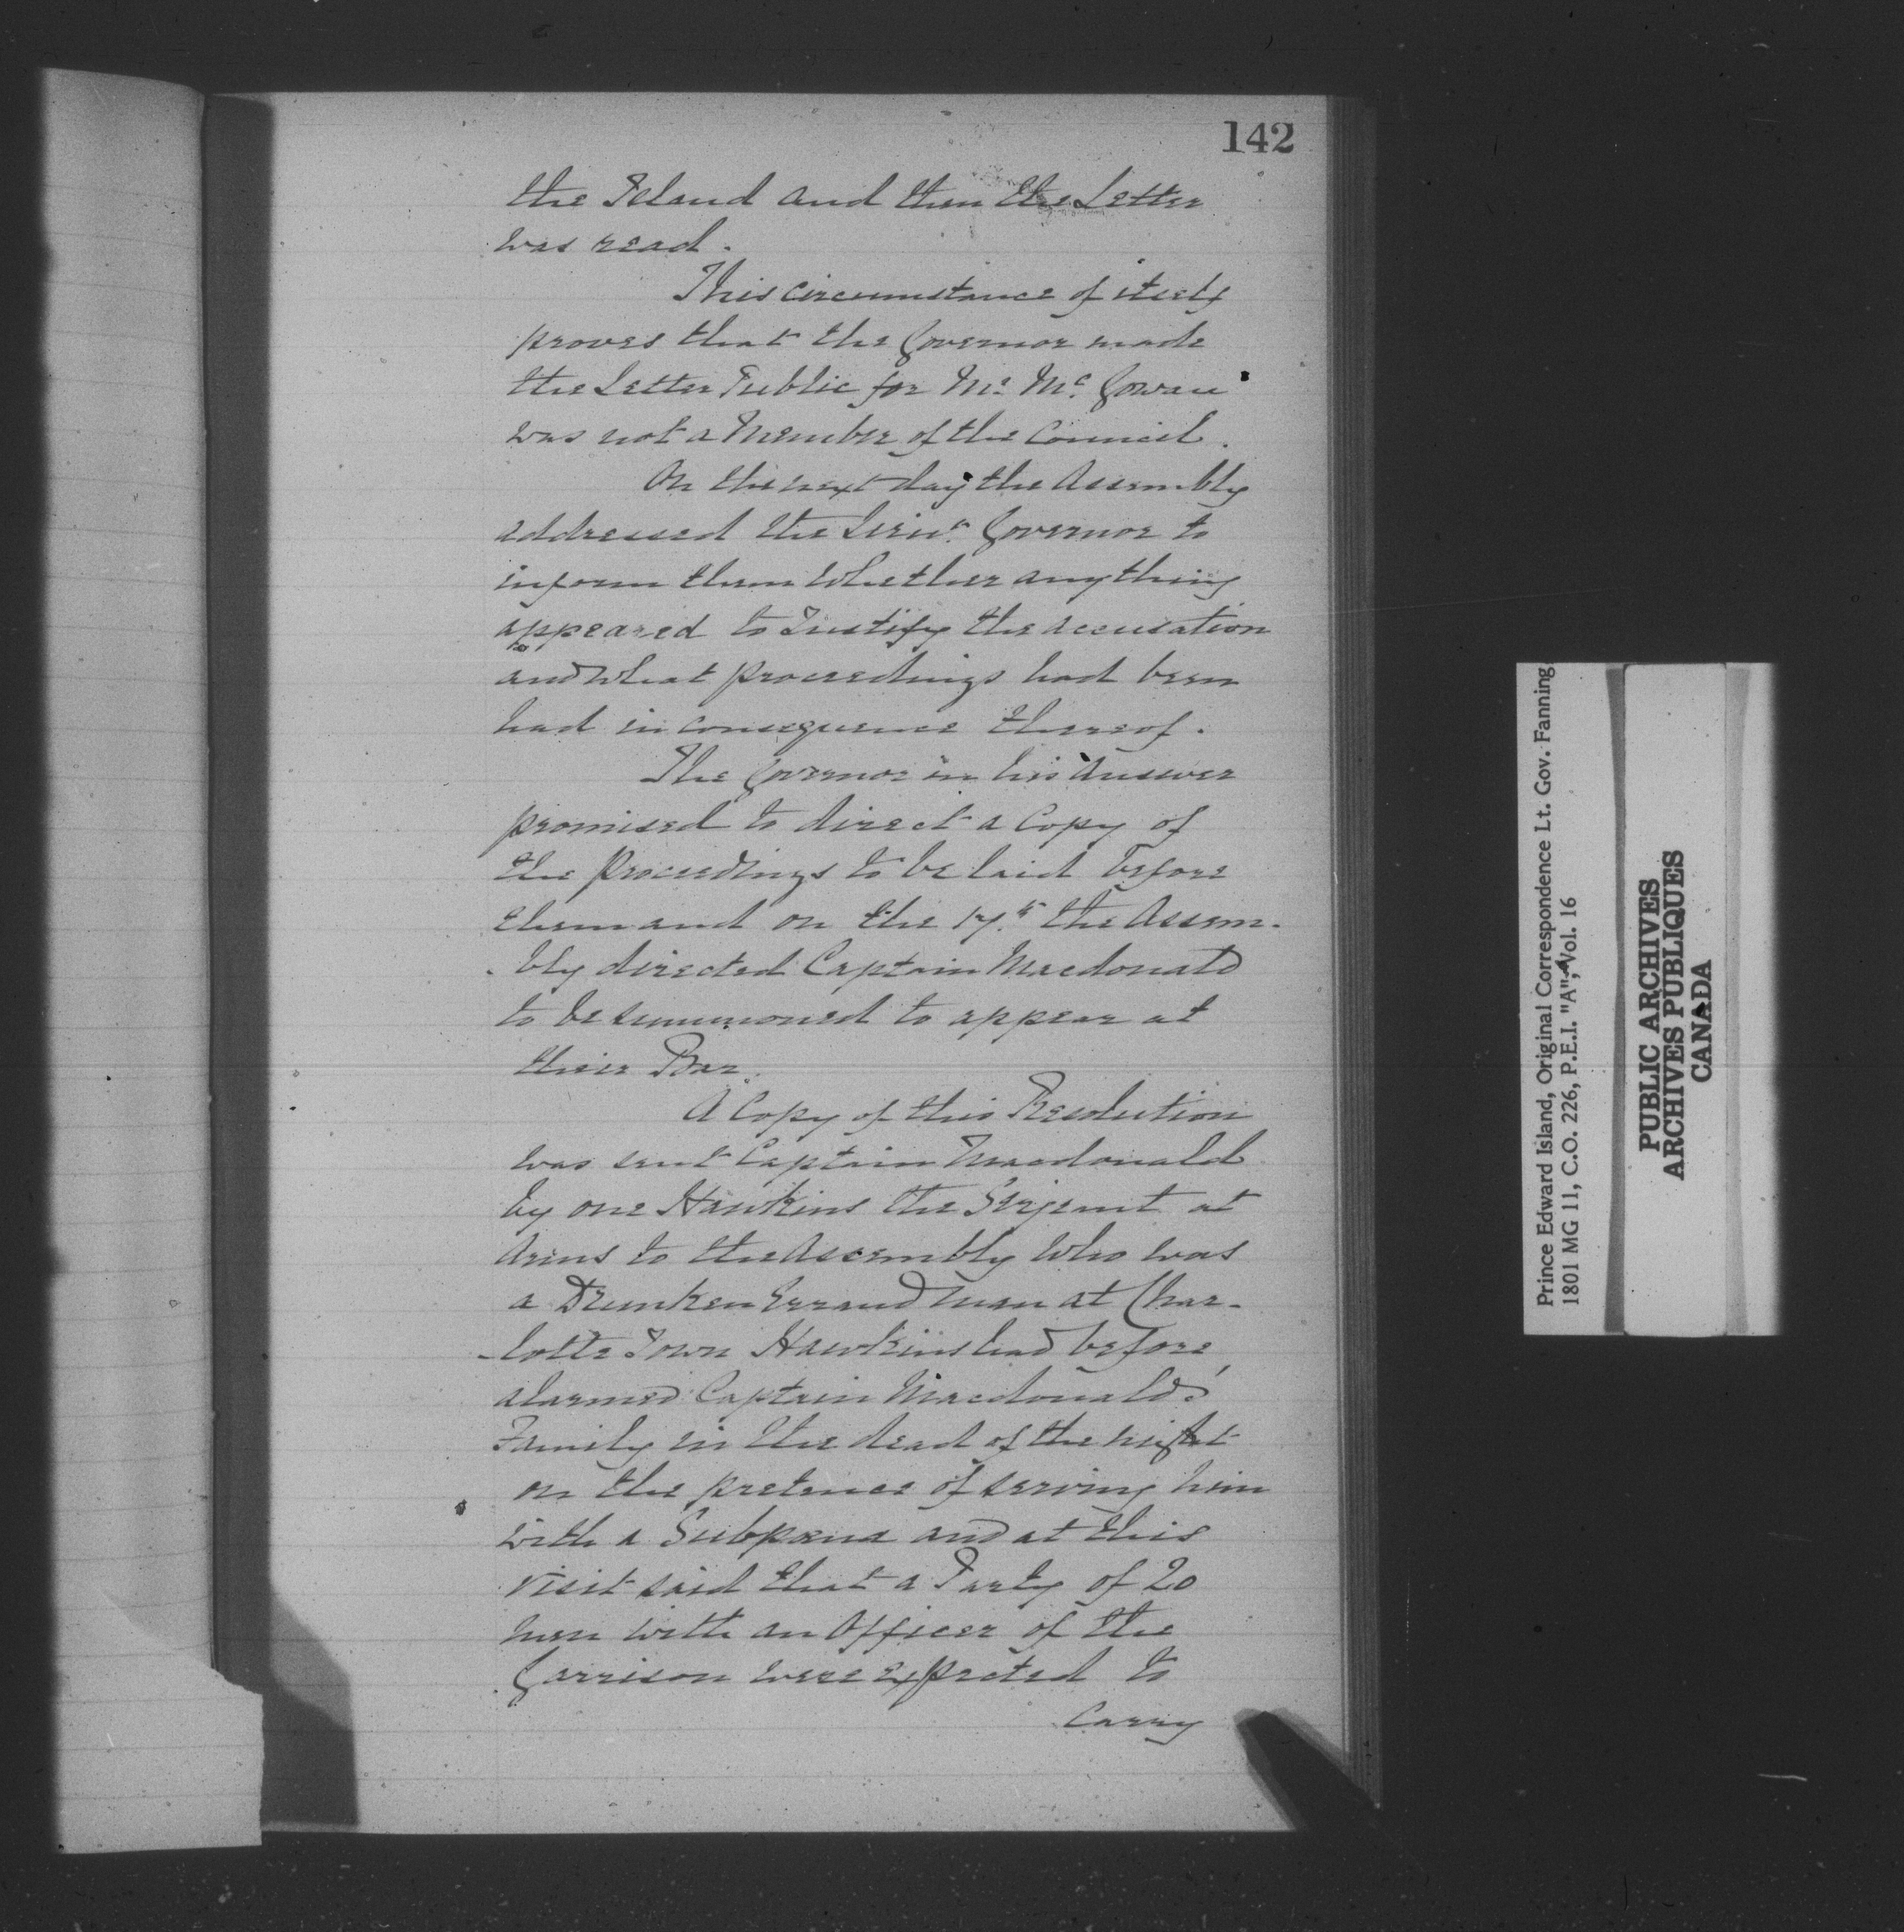 142
the Island and then the Letter
was read.
This circumstance of itself
proves that the Governor made
the Letter Public for Mr. Mc. Gowan
was not a Member of the Council.
On the next day the Assembly
addressed the Lieut. Governor to
inform them whether any thing
appeared to Justify the accusation
and what proceedings had been
had in consequence thereof.
The Governor in his Answer
promised to direct a Copy of
the Proceedings to be laid before
them and on the 17.th the Assem-
-bly directed Captain Macdonald
to be summoned to appear at
their Bar.
A Copy of this Resolution
was sent Captain Macdonald
by one Hawkins the Serjeant at
Arms to the Assembly who was
a Drunken Errand man at Char-
-lotte Town Hawkins had before
alarmed Captain Macdonald's
Family in the dead of the night
on the pretence of serving him
with a Subpœna and at this
visit said that a Party of 20
men with an Officer of the
Garrison were expected to
Carry
Prince Edward Island, Original Correspondence Lt. Gov. Fanning
1801 MG 11, C.O. 226, P.E.I. "A", Vol. 16
PUBLIC ARCHIVES
ARCHIVES PUBLIQUES
CANADA